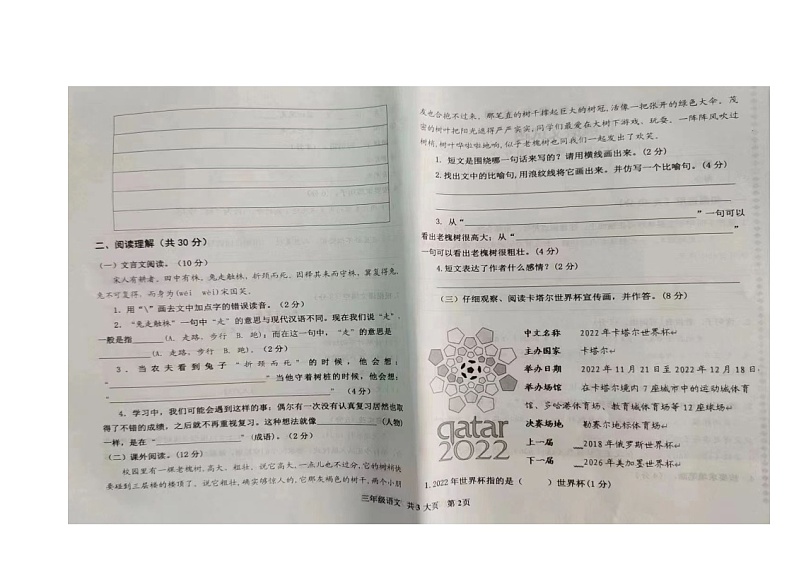 二、阅读理解（共 30 分）
（一）文言文阅读。（10 分）
宋人有耕者。田中有株，兔走触株，折颈而死。因释其耒而守株，冀复得兔，
兔不可复得，而身为(wéi wèi)宋国笑。
1. 用“\”画去文中加点字的错误读音。（2 分）
2. “兔走触株”一句中“走”的意思与现代汉语不同。现在我们说“走”，
一般是指______(A. 走路、步行 B. 跑)；而在这一句中，“走”的意思是
______(A. 走路、步行 B. 跑)。（2 分）
3. 当农夫看到兔子“折颈而死”的时候，他会想：
“______”当他守着树桩的时候，他会想：
“______”（4 分）
4. 学习中，我们可能会遇到这样的事：偶尔有一次没有认真复习居然也取
得了不错的成绩，之后就不再重视复习。这种想法就像______(人物)
一样，是在“______”(成语)。（2 分）
（二）课外阅读。（12 分）
校园里有一棵老槐树，高大、粗壮。说它高大，一点儿也不过分，它的树梢快
要碰到三层楼的楼顶了。说它粗壮，确实够惊人的，它那灰褐色的树干，两个小朋
友也合抱不过来，那笔直的树干撑起巨大的树冠，活像一把张开的绿色大伞。茂
密的树叶把阳光遮得严严实实，同学们最爱在大树下游戏、玩耍。一阵阵风吹过
树梢，树叶哗啦啦地响，似乎老槐树也同我们一起发出了欢笑。
1. 短文是围绕哪一句话来写的？请用横线画出来。（2 分）
2.找出文中的比喻句，用浪纹线将它画出来。并仿写一个比喻句。（4 分）
3. 从“______”一句可以
看出老槐树很高大；从“______”
一句可以看出老槐树很粗壮。（4 分）
4.短文表达了作者什么感情？（2 分）
（三）仔细观察、阅读卡塔尔世界杯宣传画，并作答。（8 分）
qatar
2022
中文名称 2022 年卡塔尔世界杯
主办国家 卡塔尔
举办日期 2022 年 11 月 21 日至 2022 年 12 月 18 日
举办场馆 在卡塔尔境内 7 座城市中的运动城体育
馆、多哈港体育场、教育城体育场等 12 座球场
决赛场地 勒赛尔地标体育场
上一届 2018 年俄罗斯世界杯
下一届 2026 年美加墨世界杯
1.2022 年世界杯指的是（ ）世界杯(1 分)
三年级语文 共 3 大页 第 2 页